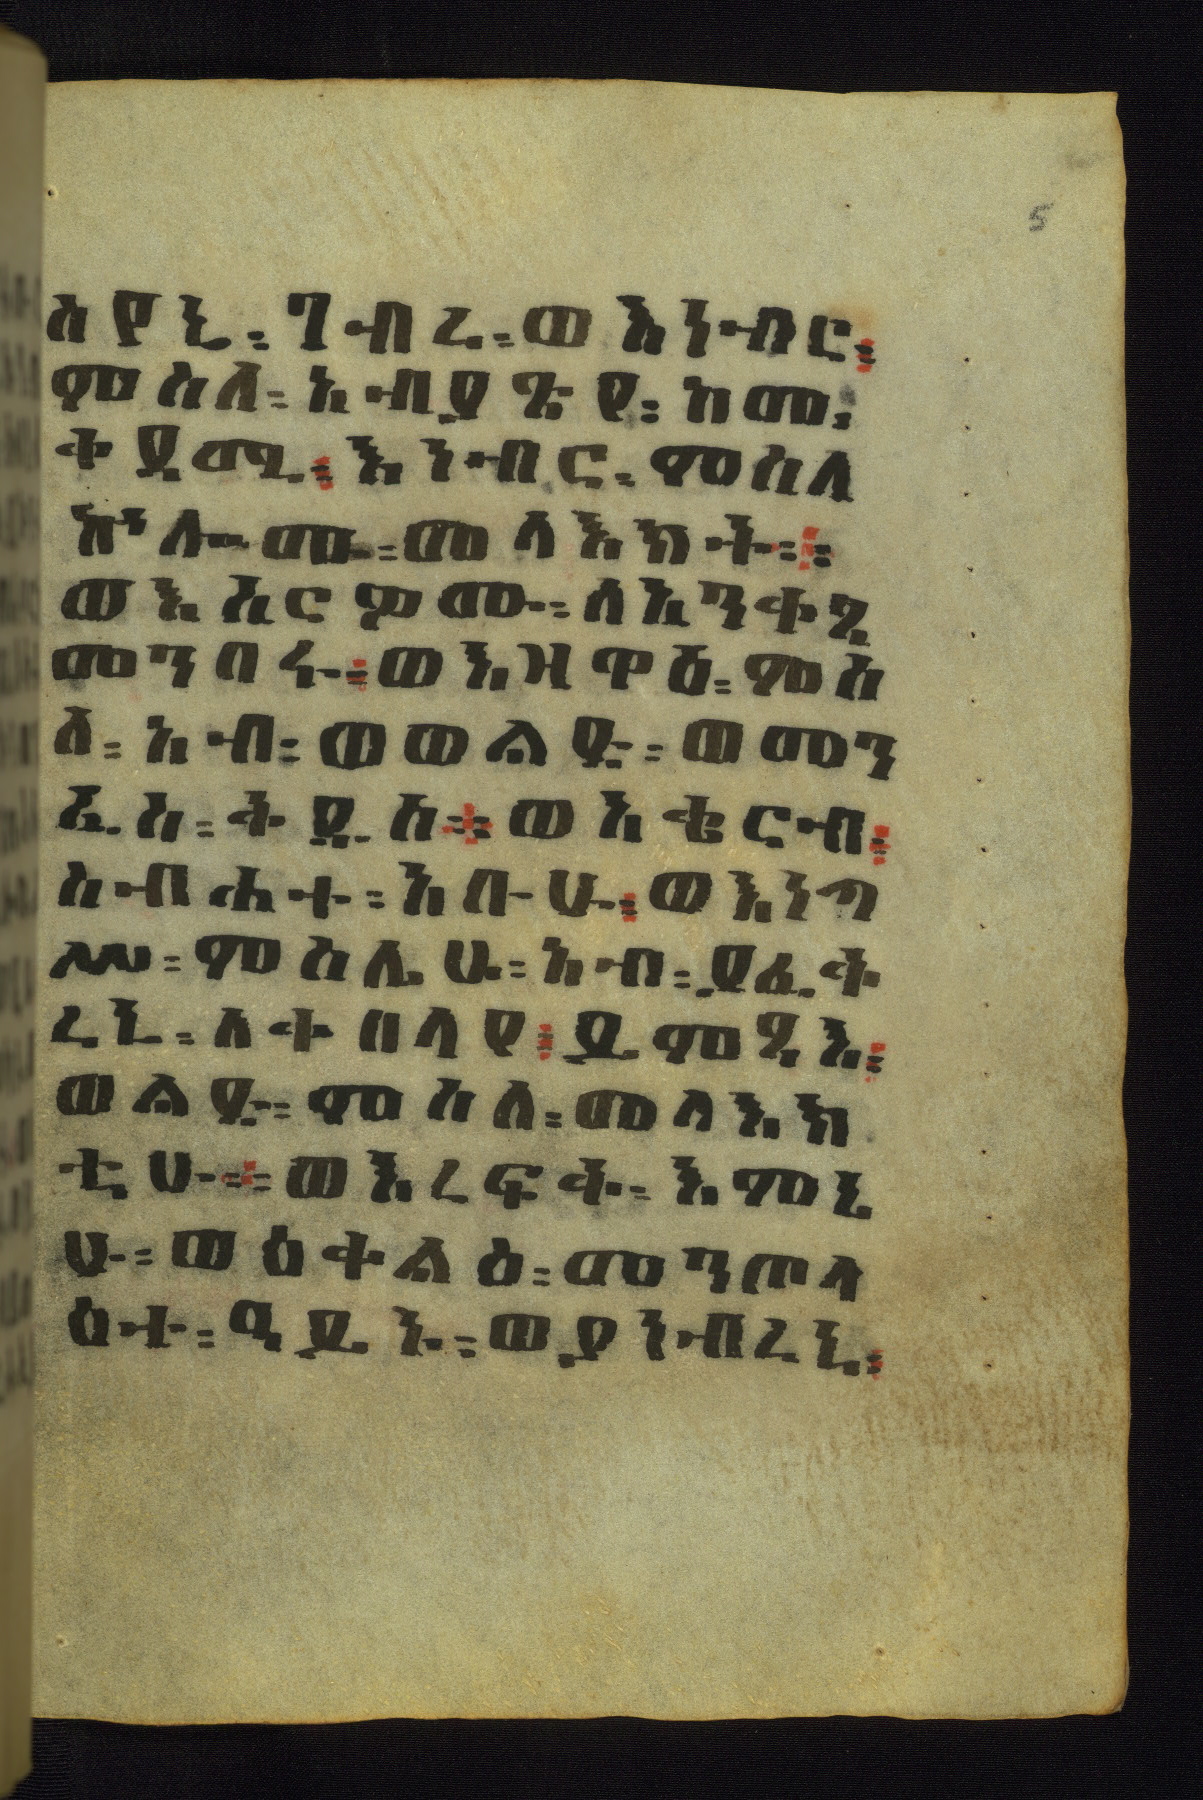 5
ስዖኒ፡ ግብረ፡ ወእነብር፤
ምስለ፡ አብያጼየ፡ ከመ፡
ቀዳሚ፤ እነብር፡ ምስለ
ኵሉሙ፡ መላእክት፡፡
ወእእርምሙ፡ ለእንቀጺ
መንበሩ፤ ወእዜኀዕ፡ ምስ
ለ፡ አብ፡ ወወልድ፡ ወመን
ፈስ፡ ቅዱስ፡፡ ወአቄርብ፤
ስብሐተ፡ እሰኀ፤ ወእነግ
ሥ፡ ምስሌሁ፡ አብ፡ ያፈቅ
ረኒ፡ ለቀበላየ፤ ይምጻእ፤
ወልድ፡ ምስለ፡ መላእክ
ቲሁ፡፡ ወእረፍቅ፡ እምኔ
ሁ፡ ወዕቀልዕ፡ መንጦላ
ዕተ፡ ዓይኑ፡ ወያነብረኒ፤